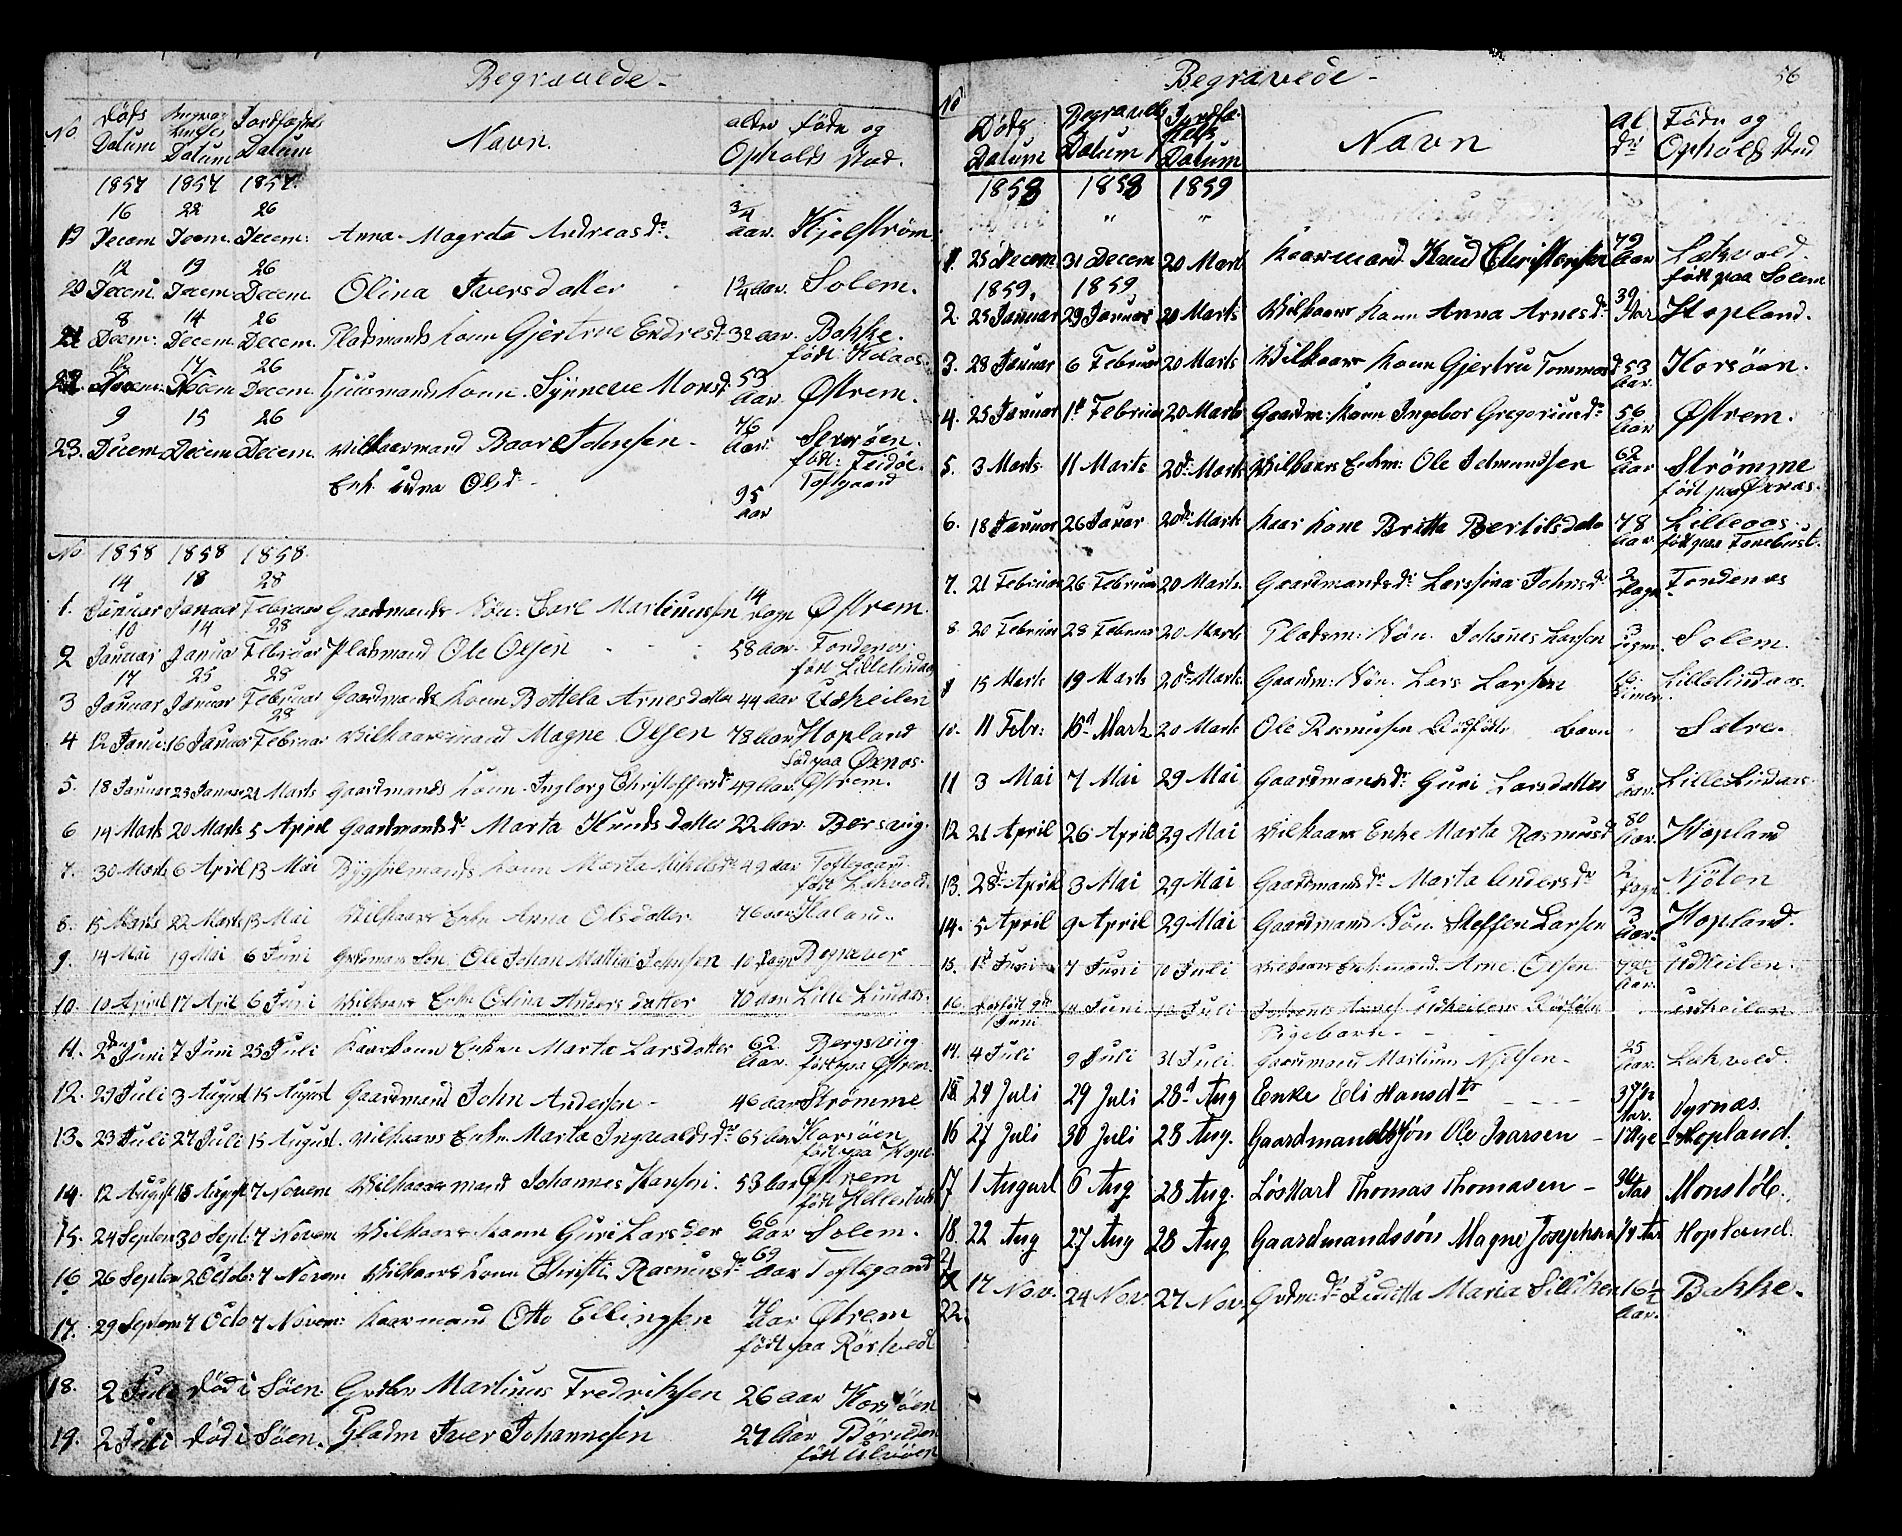 Begravede
No Døds Datum Datum Jordfæstels Datum Navn. alder føde og Opholds stad.
1857 1857 1857
16 22 26 3/4
19 Decem Decem Decem: Anna Magreta Andreasdr. aar. Kjelstrøm
12 19 26
20 Decem. Decem Decem. Olina Iversdatter 1 3/4 aar. Solem.
8 14 26
21 Decem: Decem Decem. Pladsmands kone Gjertrue Endresd: 32 aar. Bakke.
12 17 26 født: Holaas.
22 Decem Decem Decem Huusmands kone Synneve Monsd 53 aar Østrem.
9 15 26
23. Decem Decem Decem. Vilkaarmand Baar Johnsen 76 aar. Severøen.
født: Feidøe.
Enk. Olsd. 95 aar Toftgaard
No 1858 1858 1858
14 18 28
1. Januar Januar Februar Gaardmands Søn: Carl Martinussen 14 Dage Østrem.
10 14 28
2 Januar Januar Februar Pladsmand Ole Olsen 58 aar. Fondenes.
17 25 28 født Lillelindaas
3 Januar Januar Februar Gaardmands kone Bottela Arnesdatter 44 aar Udkeilen
28
4 12 Janu: 16 Januar Februar Vilkaarsmand Magne Olsen 78 aar Hopland
fød paa Øxnas.
5. 18 Januar 23 Januar 21 Marts Gaardmands kone Ingborg Christoffersdr 49 aar. Østrem.
6 14 Marts 20 Marts 5 April Gaardmandsdr Marta Knudsdatter 22 aar. Bersvig.
7. 30 Marts 6 April 13 Mai Bygselmands kone Marta Mikelsdr 49 aar Toftegaard
født Lakvold.
8. 15 Marts 22 Marts 13 Mai Vilkaars Enke Anna Olsdatter 76 aar Haland.
9. 14 Mai 19 Mai 6 Juni Grdman Søn: Ole Johan Mathias Johnsen 10 Dage Bognæver
10. 10 April 17 April 6 Juni Vilkaars Enke Andersdatter 70 aar Lille Lindaas.
11. 2den Juni 7 Juni 25 Juli Kaarkone Enken Marta Larsdatter 62 aar. Bergsviig
født paa Østrem.
12. 29 Juli 3 August 15 August Gaardmand John Andersen 46 aar Strømme
13. 23 Juli 27 Juli 15 August. Vilkaars Enke Marta Ingvaldsdr 65 aar Korsøen
født paa Hope.
14. 12 August 18 August 7 Novem Vilkaarsmand Johannes Hansen. 53 aar Østrem
født
15. 24 Septem 30 Sept: 7 Novem Vilkaars kone Guri Larsder 66 aar Solem.
16. 26 Septem 2 Octob: 7 Novem Vilkaars kone Christi Rasmusdr 69 aar Toftegaard
17. 29 Septem 7 Octo 7 Novem: Kaarmand Otto Ellingsen 76 aar Østrem
født paa Rørtvedt
18. 2 Juli Død i Søen. Martinus Fredriksen 26 aar Korsøen
19. 2 Juli død i Søen. Pladm Iver Johannesen 27 aar
født Ulvøen
Begravede 56
No Døds Datum Begravels Datum Jordfæstels Datum Navn alder Føde og Opholds stad
1858 1858 1859
" "
1. 25 Decem 31 Decem 20 Marts Kaarmand. Knud Christensen 79 aar Lakvold.
1859. 1859 født paa Solem
2. 25 Januar 29 Januar 20 Marts Vilkaars kone Anna Arnesdr 39 aar Hopland.
3. 28 Januar 6 Februar 20 Marts Vilkaars kone Gjertru Tommasd 53 aar. Korsøen.
4. 25 Januar 1st Februar 20 Marts Gaardm: kone Ingebor Gregoriusdr 56 aar Østrem.
5. 3 Marts 11 Marts 20de Marts Vilkaars Enkm: Ole Jelmundsen 62 aar Strømme
født paa Øxnas.
6. 18 Januar 26 Januar 20de Marts Kaar kone Britta Bertilsdatter 78 aar. Lilleoos.
født paa Tonebust.
7. 21 Februar 26 Februar 20 Marts. Gaardmandsdr Larsina Johnsdr 2 Dage Fondenes
8. 20 Februar 28 Februar 20 Marts Pladsm: Søn. Johanes Larsen 3 uger. Solem.
9 15 Marts 19 Marts 20de Marts. Gaardm: Søn. Lars Larsen Timer. Lillelindaas.
10. 11 Febr: 15d Marts 20 Marts Ole Rasmussen Dødfødte barn Sætre.
11 3 Mai 7 Mai 29 Mai Gaardmansdr Guri Larsdatter 8 aar. Lille Lindaas.
12 21 April 26 April 29 Mai Vilkaars Enke Marta Rasmusd 80 aar. Hopland
13. 28de April 3 Mai 29 Mai Gaardmansdr Marta Andersdr 2 Dage Njøten
14. 5 April 9 April 29 Mai Gaardmans Søn. Steffen Larsen 3 aar. Hopland.
15. 1st Juni 7 Juni 10 Juli Vilkaars Enkemand. Arne Olsen aar. Udkeilen.
16. Juni Juni Juli Udkeilens Dødfødte Udkeilen
Pigebarn
14. 4 Juli 9 Juli 31 Juli Gaardmand Martinus Nielsen 25 aar. Lakvold.
15 24 Juli 29 Juli 28d Aug Enke Eli Hansdtr Dyrnæs.
16 27 Juli 30 Juli 28 Aug. Gaardmandssøn Ole Ivarsen Hopland.
17 1 August 6 Aug 28 Aug. Løskarl Thomas Thomasen Monsløb.
18. 22 Aug 27 Aug 28 Aug Gaardmandssøn Magne Josephsen Hopland.
21 17 Nov. 24 Nov. 27 Nov. Grdm: Dr Maria 16½ aar. Bakke.
22.